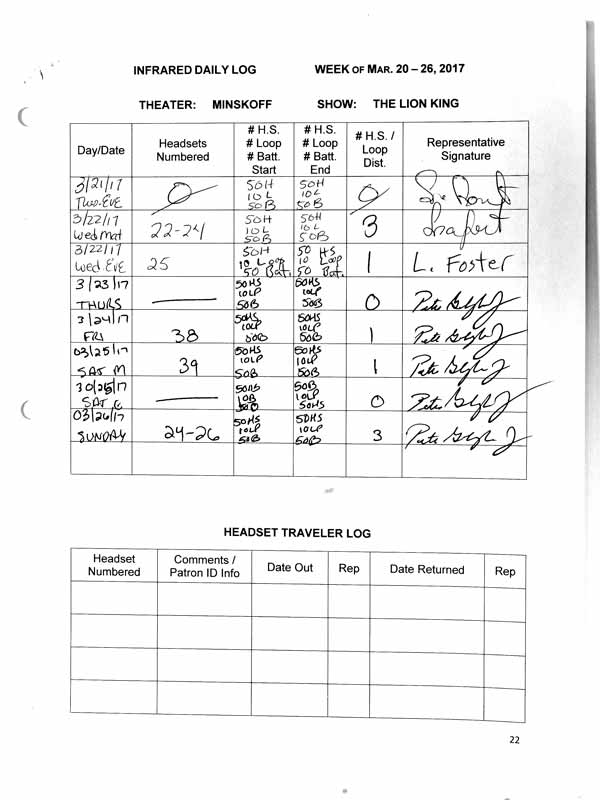 INFRARED DAILY LOG WEEK OF MAR. 20 – 26, 2017
THEATER: MINSKOFF SHOW: THE LION KING
Day/Date Headsets Numbered # H.S. # Loop # Batt. Start # H.S. # Loop # Batt. End # H.S. / Loop Dist. Representative Signature
3/21/17 Tues. EVE 0 50H 10L 50B 50H 10L 50B 0
3/22/17 Wed Mat 22-24 50H 10L 50B 50H 10L 50B 3
3/22/17 Wed Eve 25 50H 10 Loop 50 Bat. 50 HS 10 Loop 50 Bat. 1 L. Foster
3/23/17 THURS — 50HS 10LP 50B 50HS 10LP 50B 0 Pete
3/24/17 FRI 38 50HS 10LP 50B 50HS 10LP 50B 1 Pete
03/25/17 SAT M 39 50HS 10LP 50B 50HS 10LP 50B 1 Pete
SAT E — 50HS 50B 10LP 50HS 0 Pete
03/26/17 SUNDAY 24-26 50HS 10LP 50B 50HS 10LP 50B 3 Pete
HEADSET TRAVELER LOG
Headset Numbered Comments / Patron ID Info Date Out Rep Date Returned Rep
22